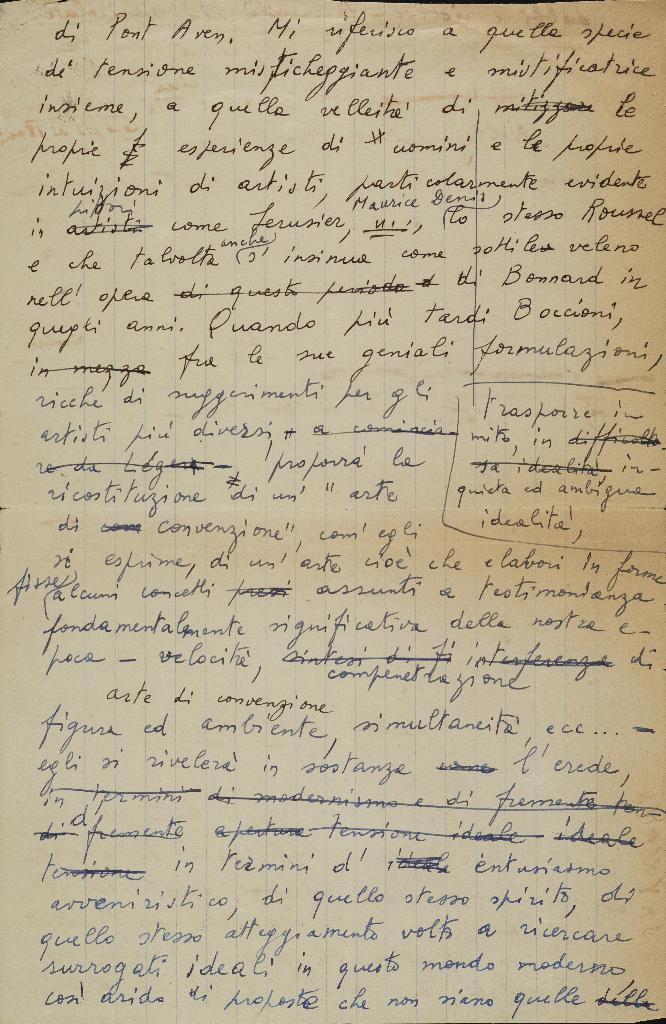 di Pont Aven. Mi riferisco a quella specie
di tensione misticheggiante e mistificatrice
insieme, a quella velleità di mitizzare le
proprie esperienze di uomini e le proprie
intuizioni di artisti, particolarmente evidente
pittori Maurice Denis
in artisti come Serusier, lo stesso Roussel
anche
e che talvolta s'insinua come sottile veleno
nell'opera di questo periodo di Bonnard in
quegli anni. Quando più tardi Boccioni,
in mezzo fra le sue geniali formulazioni,
ricche di suggerimenti per gli
artisti più diversi, a comincia-
re da Léger – proporrà la
ricostituzione di un' "arte
di convenzione", com'egli
trasporre in
mito, in difficolto-
sa idealità, in-
quieta ed ambigua
idealità,
si esprime, di un'arte cioè che elabori in forme
fisse
alcuni concetti presi assunti a testimonianza
fondamentalmente significativa della nostra e-
poca – velocità, sintesi di interferenza di
compenetrazione
arte di convenzione
figura ed ambiente, simultaneità, ecc... –
egli si rivelerà in sostanza come l'erede,
in termini di modernismo e di fremente ten-
di fremente apertura tensione ideale ideale
tensione in termini d' ideale entusiasmo
avveniristico, di quello stesso spirito, di
quello stesso atteggiamento volto a ricercare
surrogati ideali in questo mondo moderno,
così arido di proposte che non siano quelle della